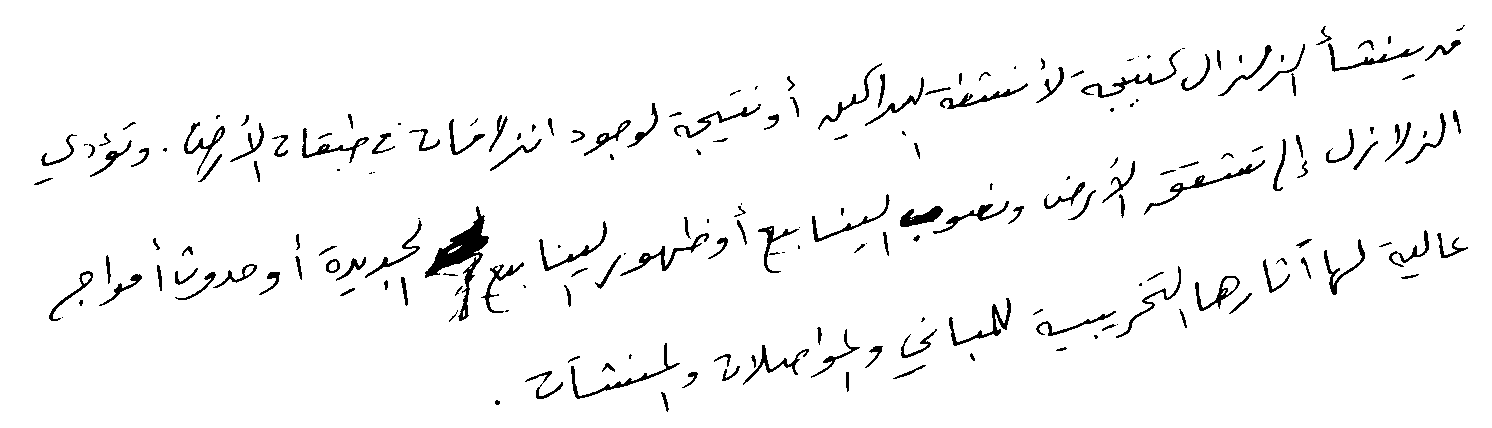 قد ينشأ الزلزال كنتيجة لأنشطة البراكين أو نتيجة لوجود انزلاقات في طبقات الأرض. وتؤدي
الزلازل إلى تشقق الأرض ونضوب الينابيع أو ظهور الينابيع الجديدة أو حدوث أمواج
عالية لها آثارها التخريبية للمباني والمواصلات والمنشآت.